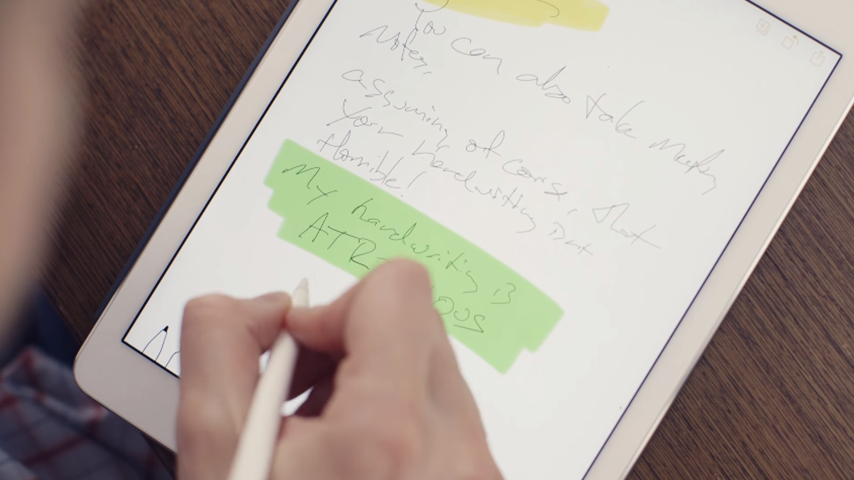 You can also take meeting
notes,
assuming of course, that
your handwriting isn't
Horrible!
My handwriting is
ATR
OUS